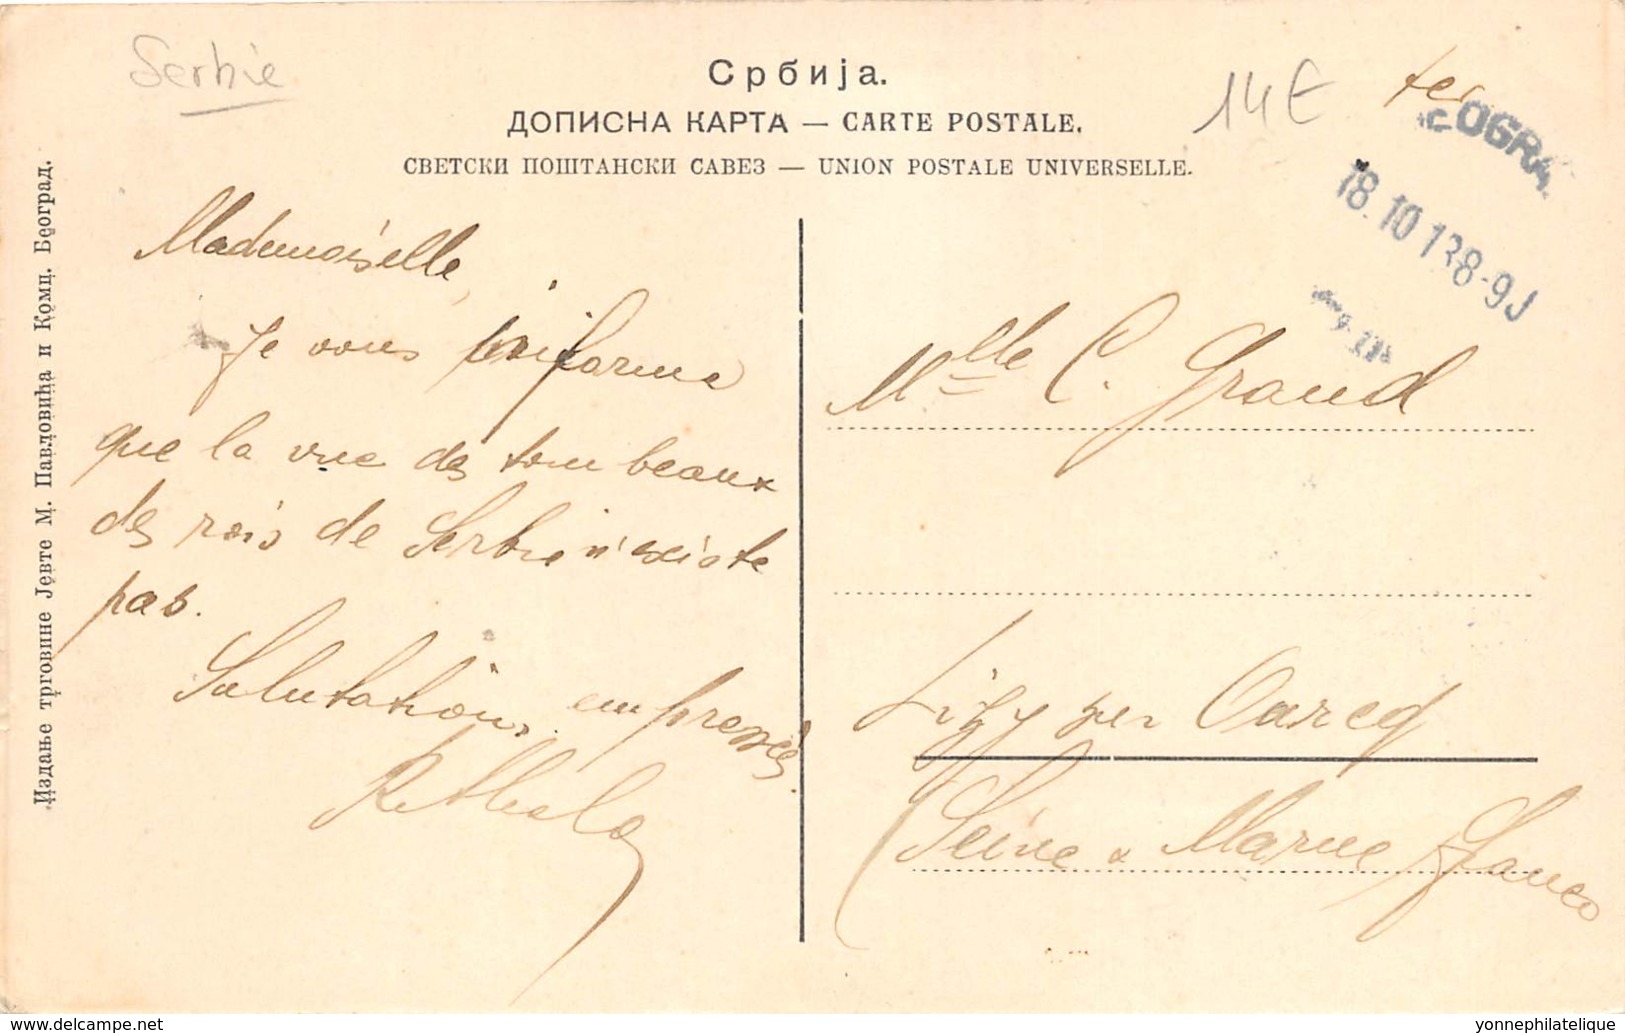 Serbie
Србија.
14 €
ДОПИСНА КАРТА — CARTE POSTALE.
СВЕТСКИ ПОШТАНСКИ САВЕЗ — UNION POSTALE UNIVERSELLE.
18.10
Издање трговине Јевте М. Павловића и Комп. Београд.
Mademoiselle,
Je vous informe
que la vue des tombeaux
des rois de Serbie n'existe
pas.
Salutations empressées.
Mlle C. Grand
Lizy sur Ourcq
Seine & Marne France
yonnephilatelie
www.delcampe.net
yonnephilatelique